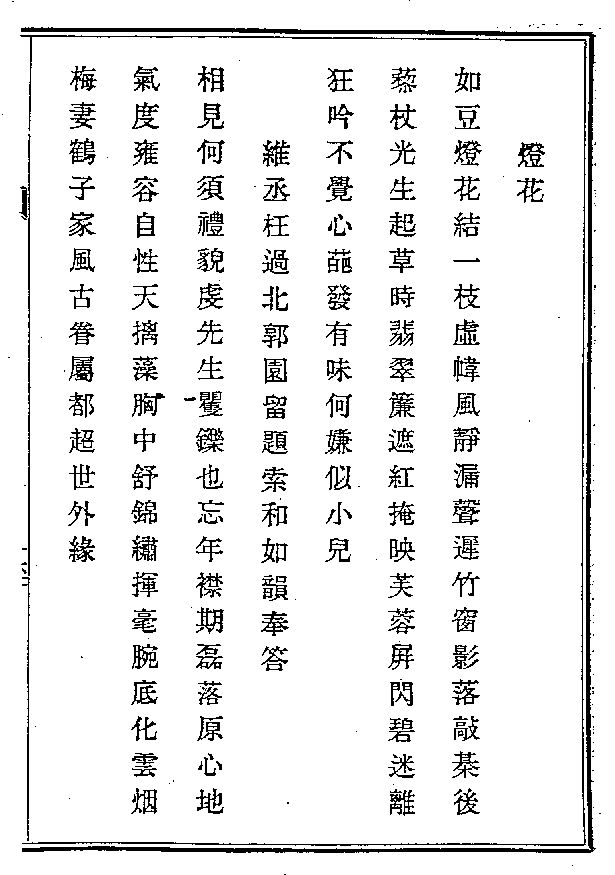 燈花
如豆燈花結一枝虛幃風靜漏聲遲竹窗影落敲棊後
藜杖光生起草時翡翠簾遮紅掩映芙蓉屏閃碧迷離
狂吟不覺心葩發有味何嫌似小兒
維丞枉過北郭園留題索和如韻奉答
相見何須禮貌虔先生矍鑠也忘年襟期磊落原心地
氣度雍容自性天摛藻胸中舒錦繡揮毫腕底化雲烟
梅妻鶴子家風古眷屬都超世外緣